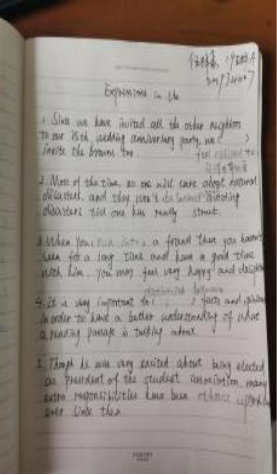 Expressions in Use
1. Since we have invited all the other neighbors
to our 15th wedding anniversary party, we (
invite the browns too.
2. Most of the time, no one will care about natural
disasters, and they won't be avoiding
disasters till one has really struck.
3. When you run into a friend that you haven't
seen for a long time and have a good time
with him. You may feel very happy and
4. It is very important to ( ) facts and
in order to have a better understanding of what
a reading passage is talking about.
5. Though he was very excited about being elected
as president of the student association, many
extra responsibilities have been
ever since then